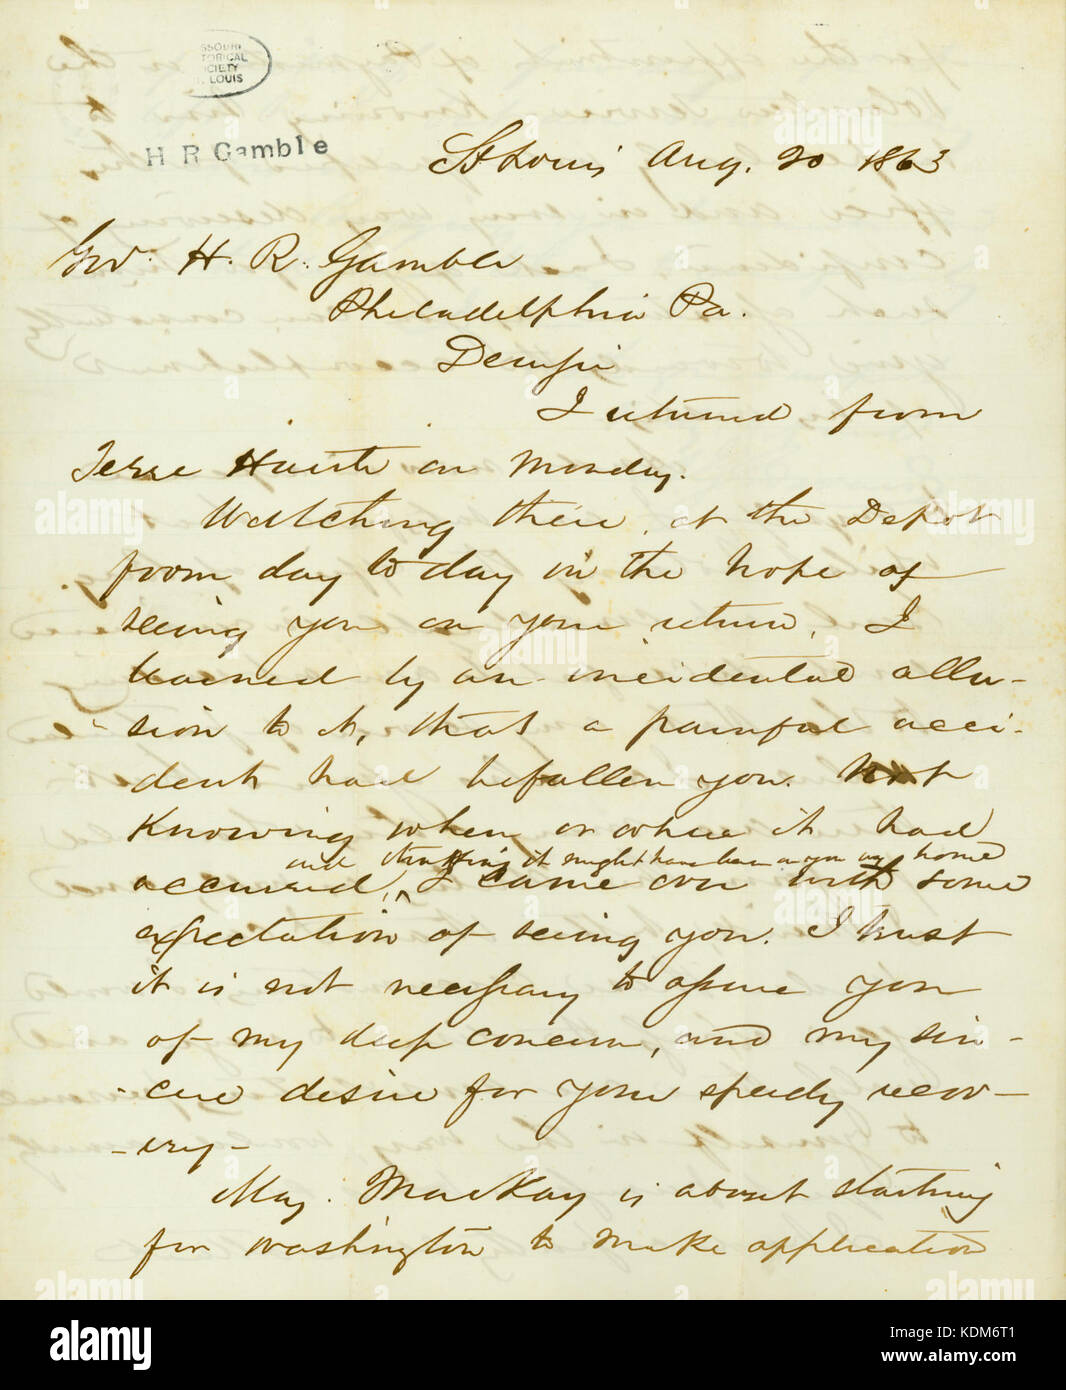 MISSOURI
HISTORICAL
SOCIETY
ST. LOUIS
H R Gamble
St Louis Aug. 20 1863
Gov. H. R. Gamble
Philadelphia Pa.
Dear Sir
I returned from
Terre Haute on Monday.
Watching there at the Depot
from day to day in the hope of
seeing you on your return, I
learned by an incidental allu-
-sion to it, that a painful acci-
dent had befallen you. Not
knowing when or where it had
and thinking it might have been on your way home
occurred, ^ I came on with some
expectation of seeing you. I trust
it is not necessary to assure you
of my deep concern, and my sin-
-cere desire for your speedy recov-
-ery-
Maj. MacKay is about starting
for Washington to make application
alamy
alamy
Image ID: KDM6T1
www.alamy.com